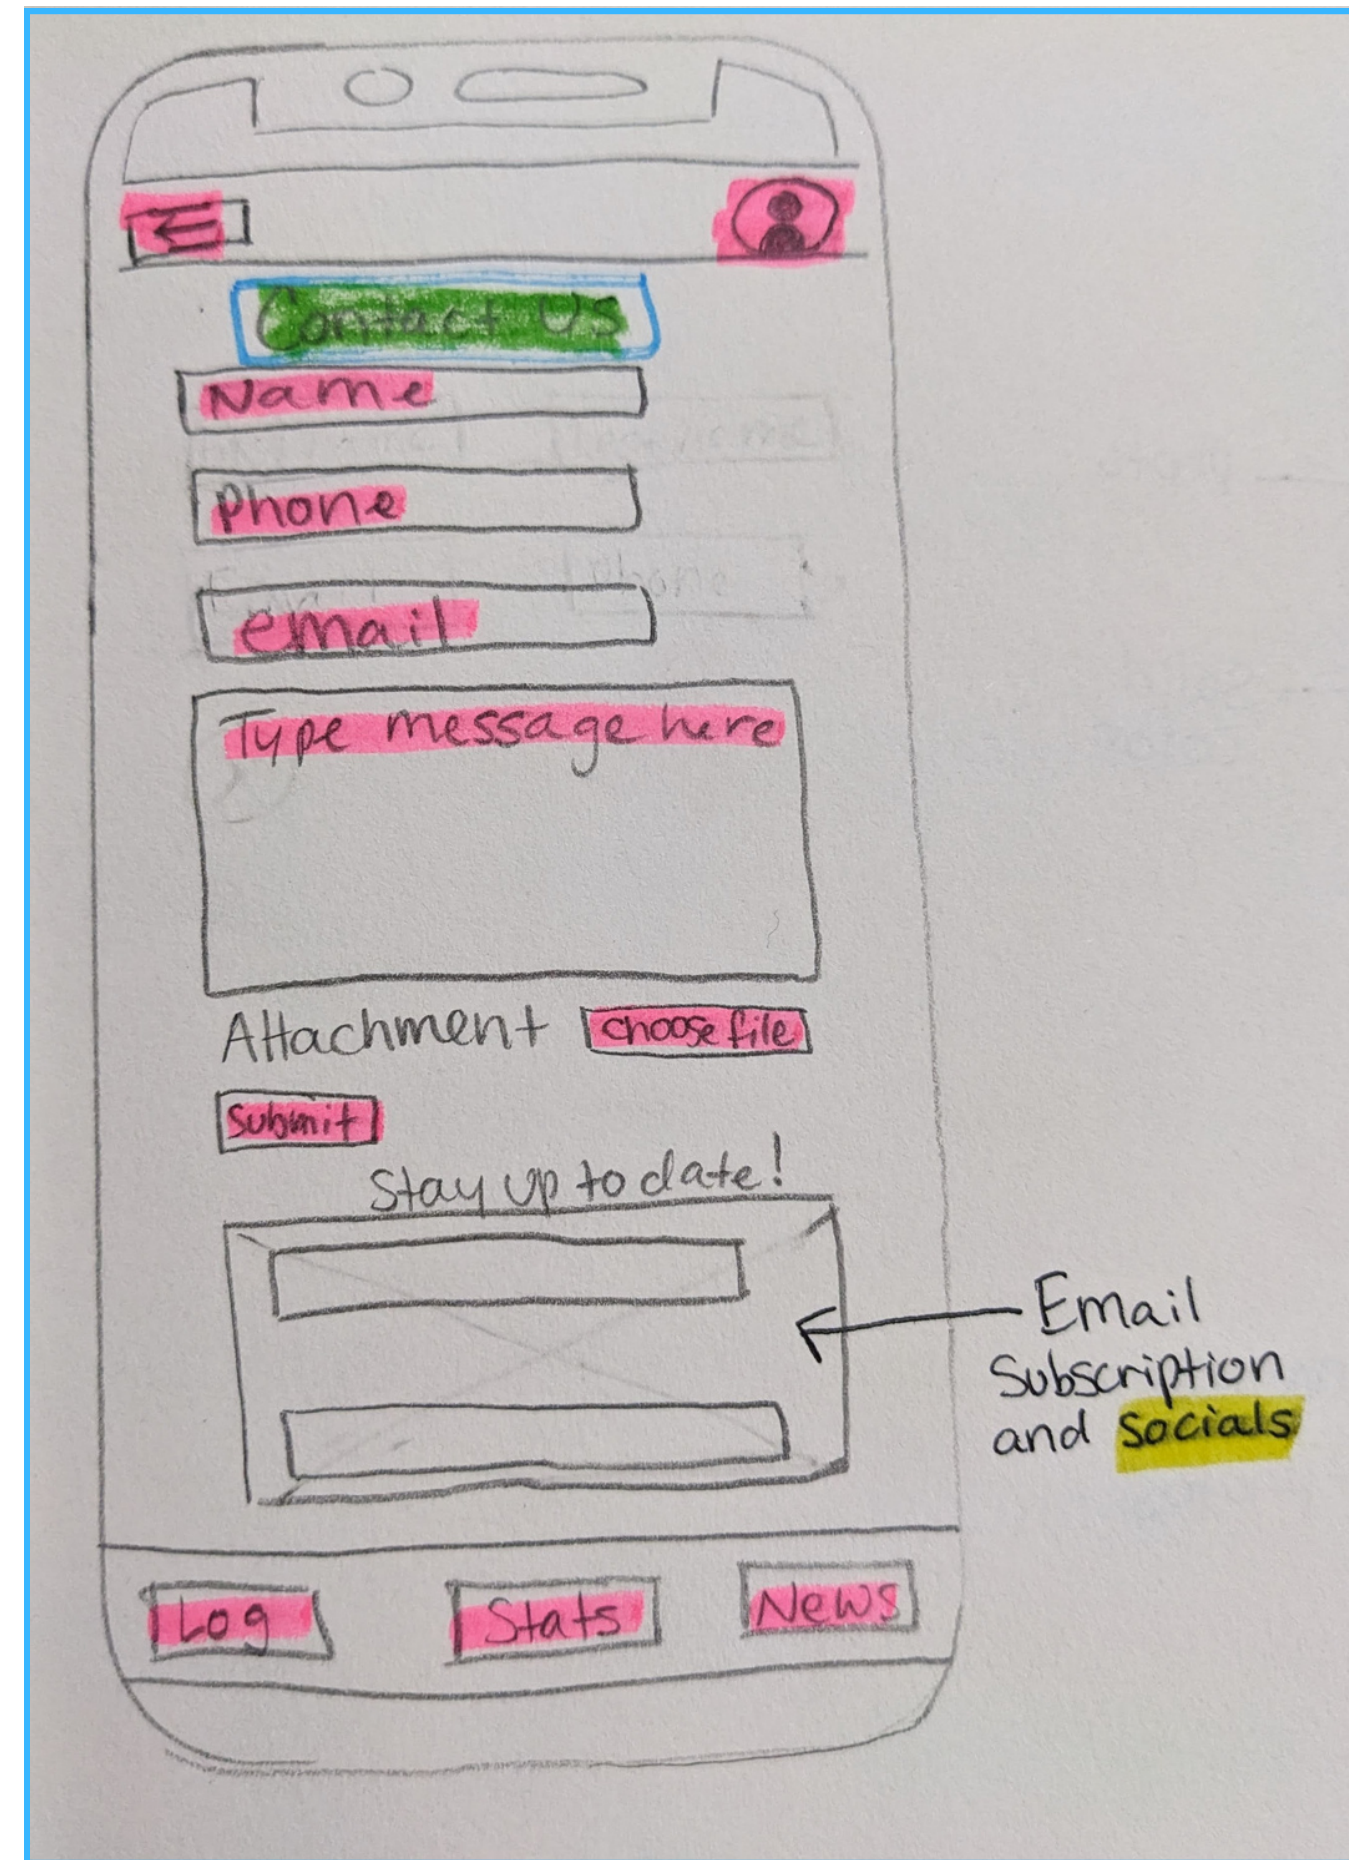 Contact Us
Name
Phone
email
Type message here
Attachment choose file
Submit
Stay up to date!
Email
Subscription
and socials
Log Stats News